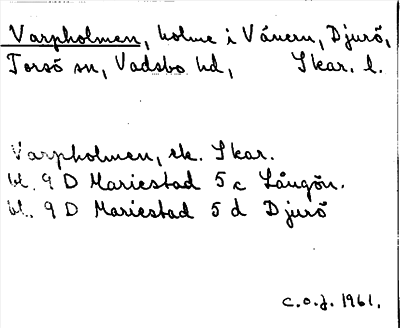 Varpholmen, holme i Vänern, Djurö,
Torsö sn, Vadsbo hd, Skar. l.
Varpholmen, ek. Skar.
bl. 9 D Mariestad 5 c Långön.
bl. 9 D Mariestad 5 d Djurö
c.o.j. 1961.